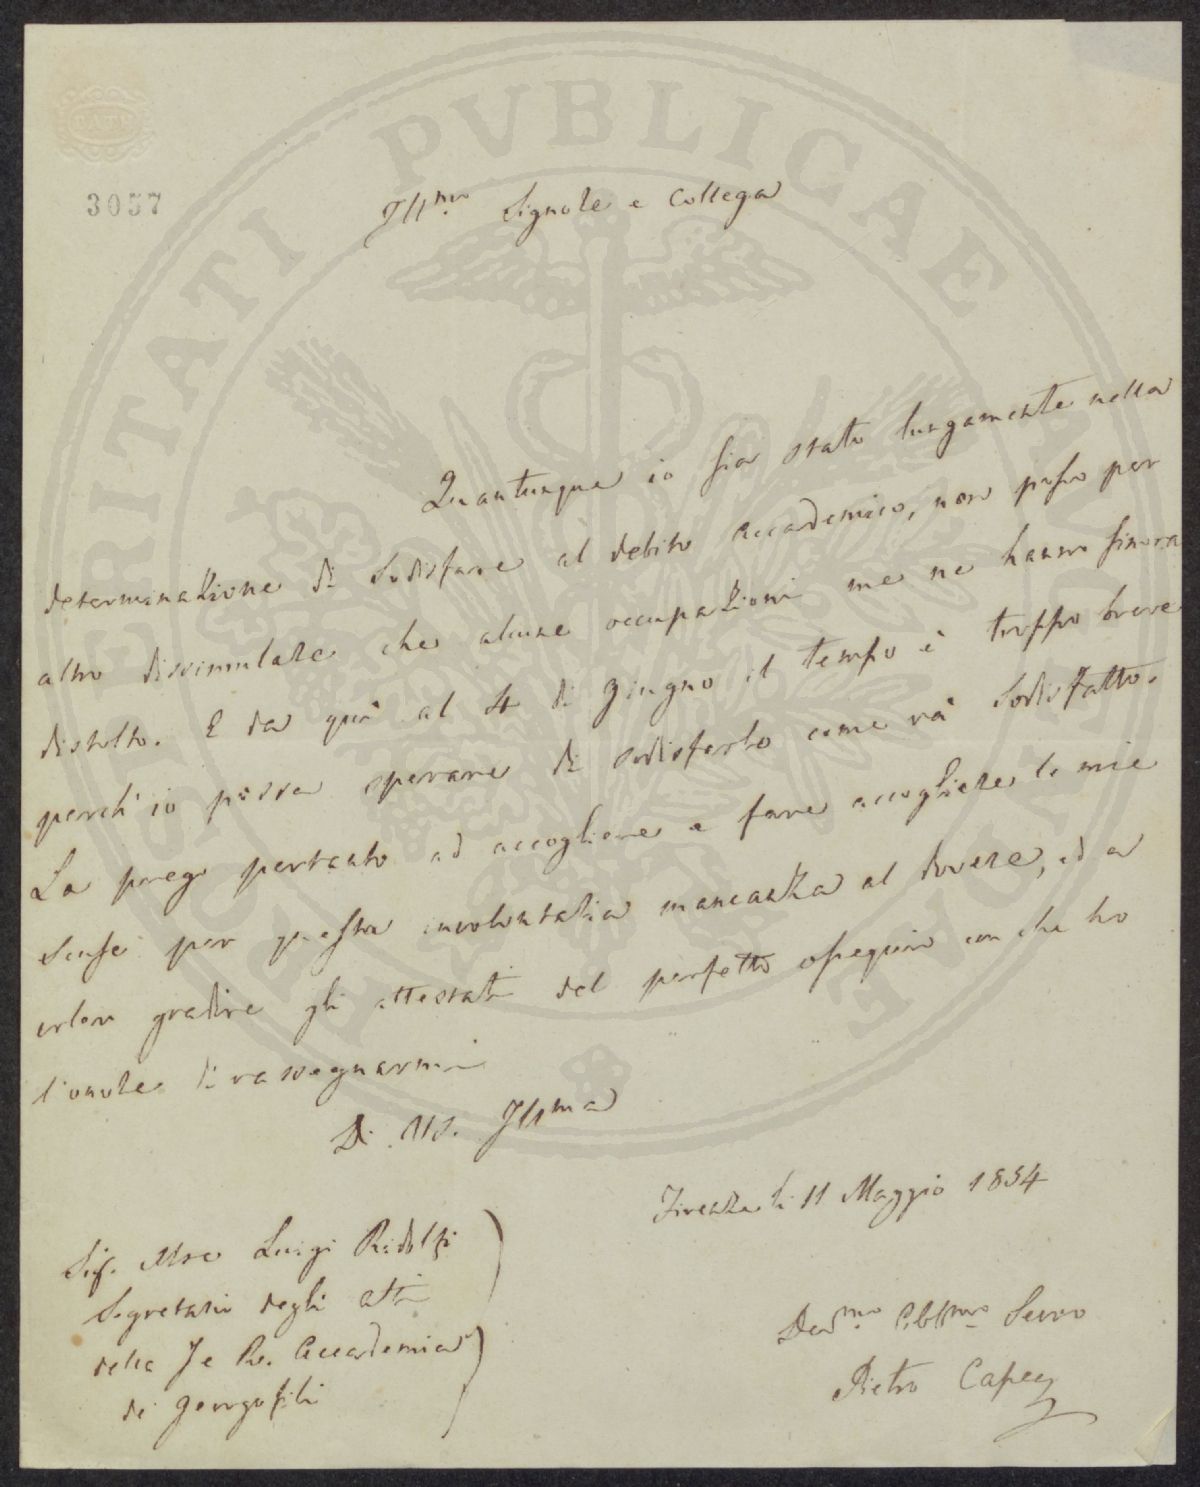 PROSPERITATI PVBLICAE AVGENDAE
BATH
3057
Ill.mo Signore e Collega
Quantunque io sia stato lungamente nella
determinazione di sodisfare al debito Accademico, non posso per
altro dissimulare che alcune occupazioni me ne hanno finora
distolto. E da quì al 4 di giugno il tempo è troppo breve
perch' io possa sperare di sodisfarlo come và sodisfatto.
La prego pertanto ad accogliere e fare accogliere le mie
scuse per questa involontaria mancanza al dovere, ed a
voler gradire gli attestati del perfetto ossequio con che ho
l'onore di rassegnarmi
Di VS. Ill.ma
Firenze li 11 Maggio 1854
Sig. Mse Luigi Ridolfi
Segretario degli atti
della I e R. Accademia
dei Georgofili
Dev.mo Obb.mo Servo
Pietro Capei